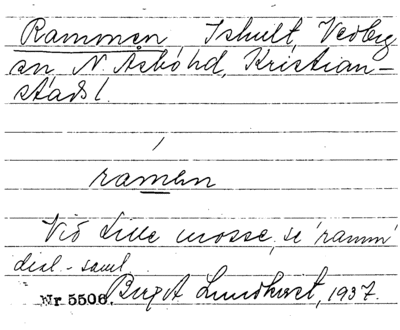 Rammen, Ishult, Vedby
sn, N. Åsbo hd, Kristian-
stads l.
ramen
Vid Lille mosse, se 'ramm'
dial.-saml.
Nr. 5506. Birgit Lundkvist, 1937.